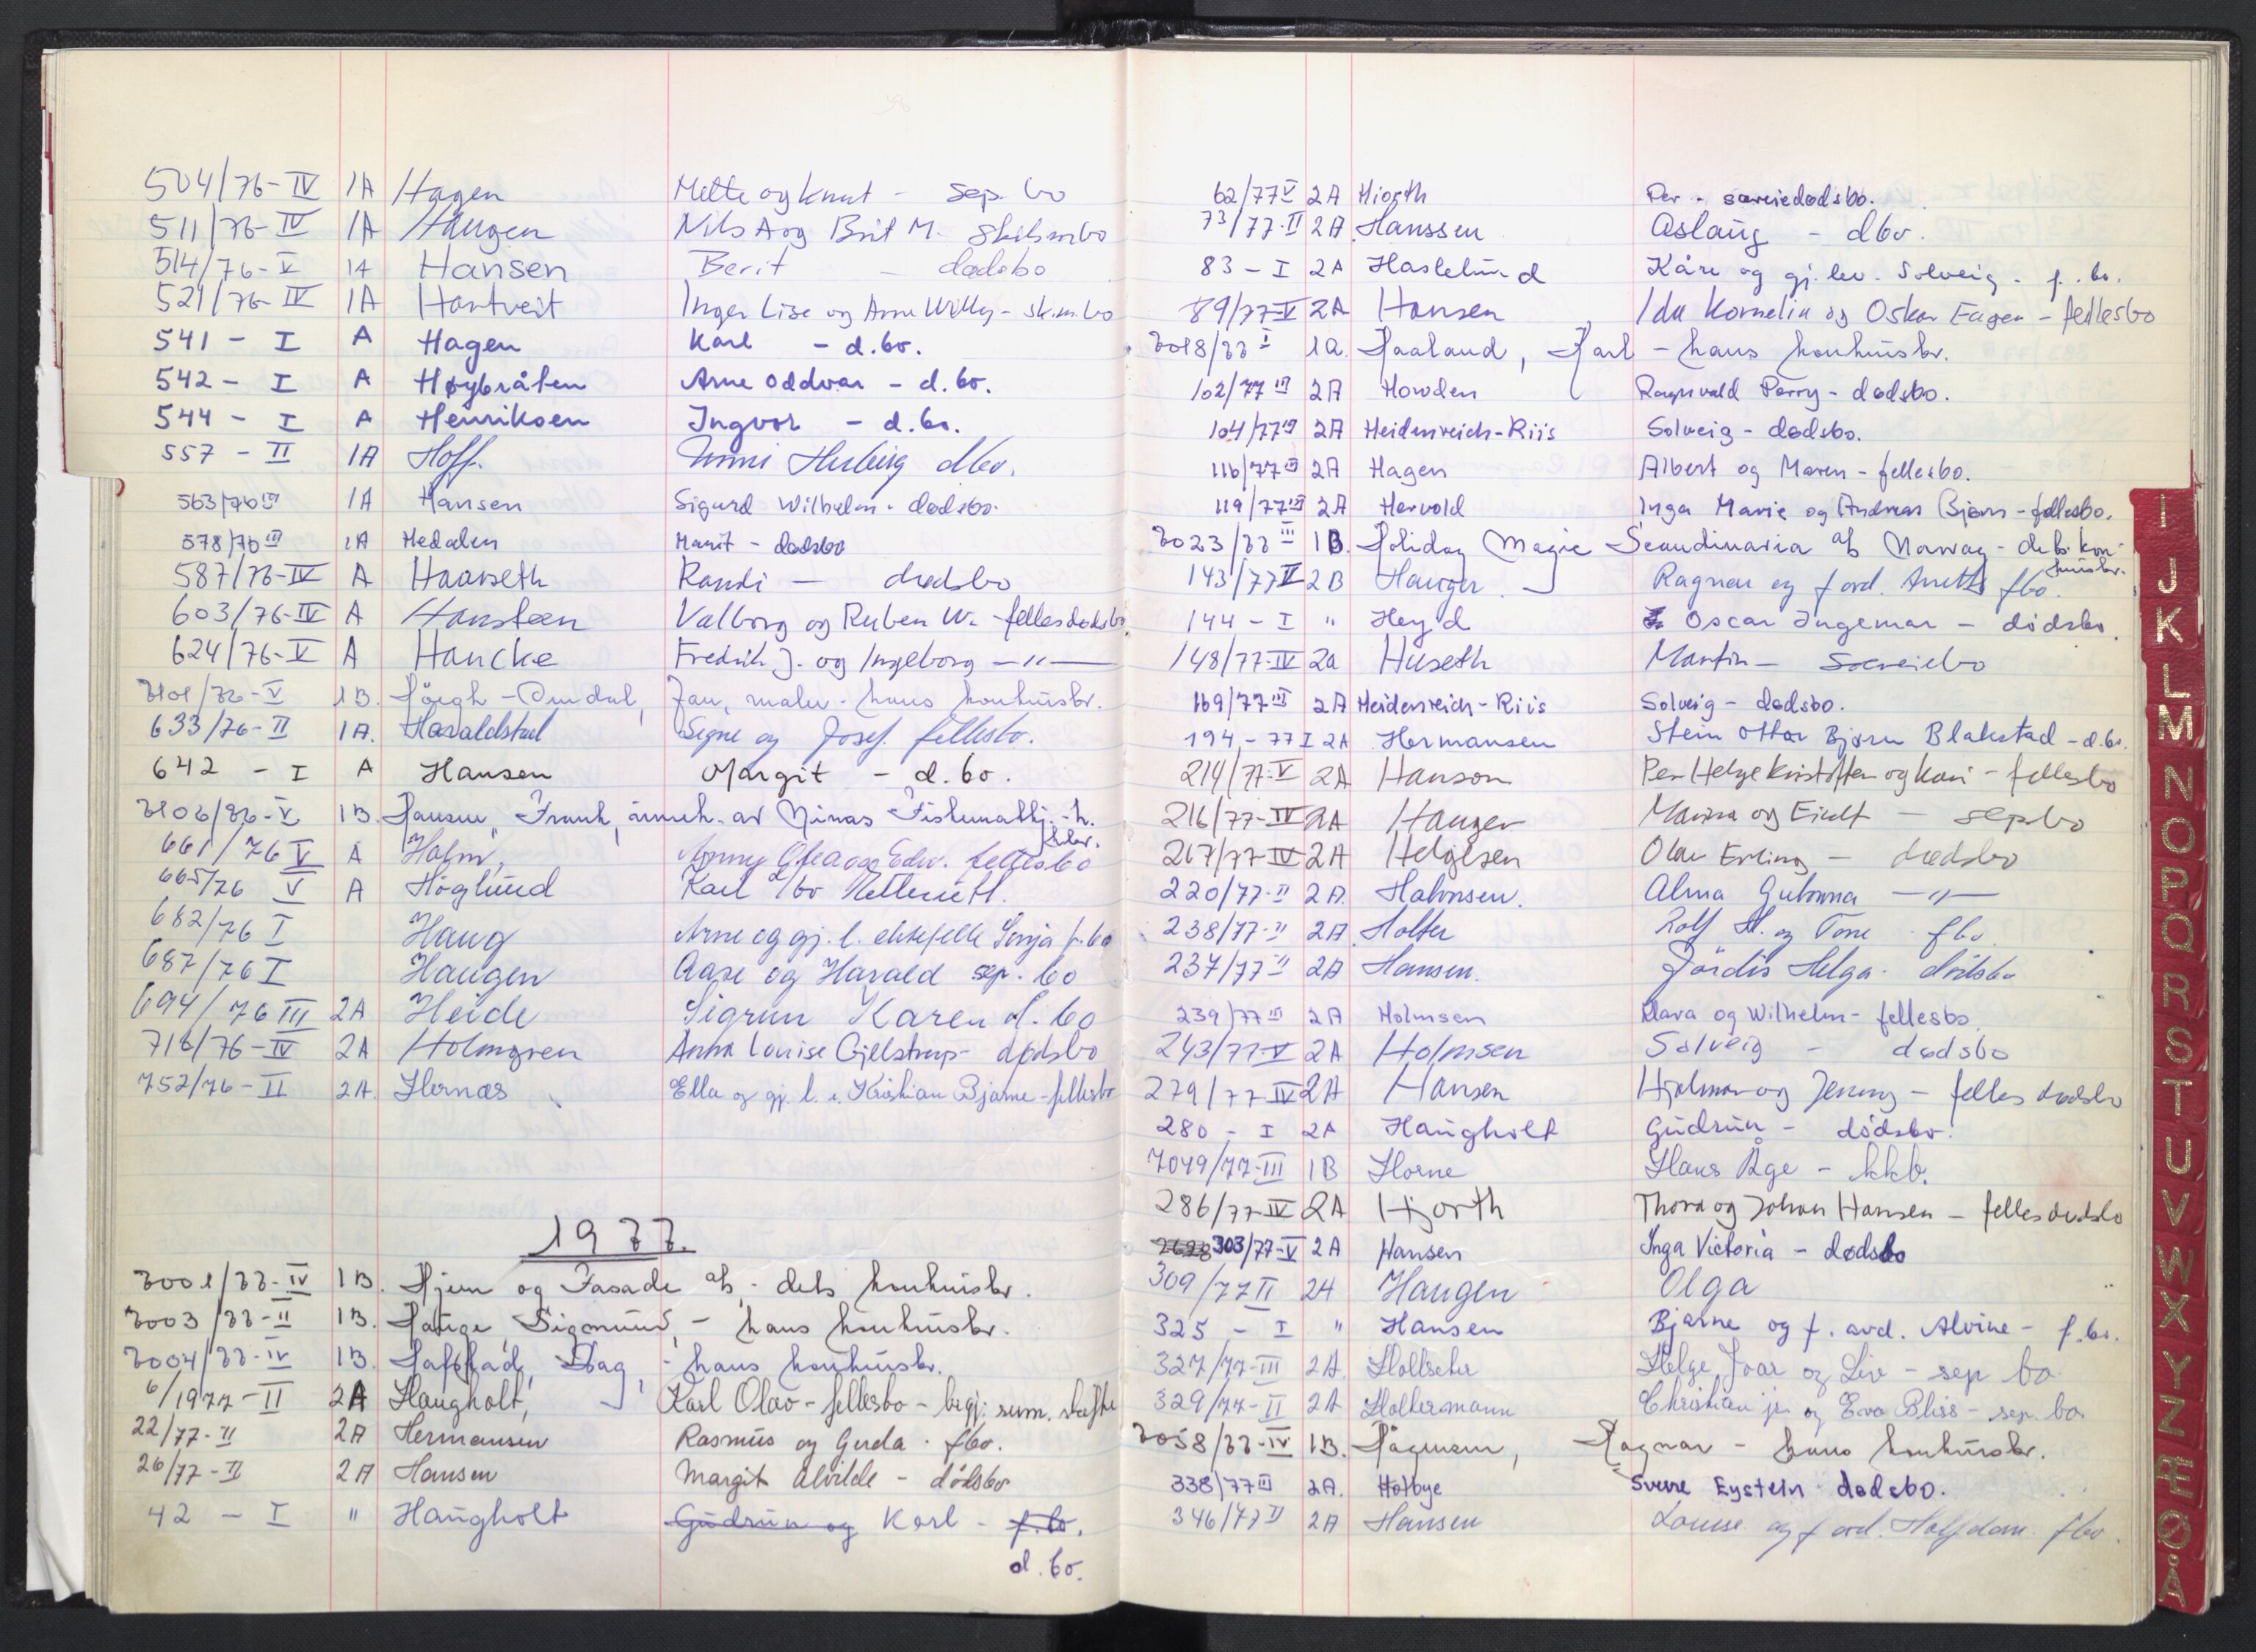 504/76-IV 1A Hagen Mette og Knut - sep. bo
511/76-IV 1A Haugen Nils A og Brit M. skilsm bo
514/76-V 1A Hansen Berit - dødsbo
521/76-IV 1A Hartveit Inger Lise og Arne Willy - sk.m.bo
541 - I A Hagen Karl - d.bo.
542 - I A Høybråten Arne Oddvar - d.bo.
544 - I A Henriksen Ingvor - d.bo.
557 - II 1A Hoff. dbo.
563/76 III 1A Hansen Sigurd Wilhelm - dødsbo.
578/76 III 1A Hedalen Marit - dødsbo
587/76-IV A Haarseth Randi - dødsbo
603/76-IV A Hansteen Valborg og Ruben W. - felles dødsbo
624/76-V A Hancke Fredrik J. og Ingeborg -"-
7101/76-V 1B. Jan, maler - hans konkursbr.
633/76-II 1A. Haraldstad Signe og Josef. fellesbo.
642 - I A Hansen Margit - d.bo.
7106/76-V 1B. Hansen, Frank, inneh. av Ninas Fisematbj. - h.
kkbr.
661/76 V A Holm, fellesbo
665/76 V A Höglund Karl
682/76 I Haug Arne og gj. l. ektefelle Sonja f.bo
687/76 I Haugen Aase og Harald sep. bo
694/76 III 2A Heide Sigrun Karen d.bo
716/76-IV 2A Holmgren Anna Louise Gjelstrup - dødsbo
752/76-II 2A. Hernæs Ella og gj. l. e. Kristian Bjarne - fellesbo
1977.
7001/77-IV 1B. Hjem og Fasade A/S - dets konkursbr.
7003/77-II 1B. Hauge, Sigmund, - hans konkursbr.
7004/77-IV 1B. Hafstad, Dag, - hans konkursbr.
6/1977-II 2A Haugholt, Karl Olav - fellesbo - begj. sum. skifte
22/77-II 2A Hermansen Rasmus og Gerda - fbo.
26/77-II 2A Hansen Margit Alvilde - dödsbo
42 - I " Haugholt Gudrun og Karl - f.bo.
d.bo.
62/77 V 2A Hiorth Per - særeiedødsbo.
73/77-II 2A Hanssen Aslaug - dbo.
83 - I 2A Haslelund Kåre og gj.lev. Solveig - f.bo.
89/77-V 2A Hansen Ida Kornelia og Oskar Eugen - fellesbo
7018/77 I 1a. Haaland, Karl - hans konkursbr.
102/77 III 2A Howden Ragnvald Perry - dødsbo.
104/77 III 2A Heidenreich-Riis Solveig - dødsbo.
116/77 III 2A Hagen Albert og Maren - fellesbo.
119/77 III 2A Hervold Inga Marie og Andreas Bjørn - fellesbo.
7023/77 III 1B. Holiday Magic Scandinavia A/S Norway - dets kon-
kursbr.
143/77 II 2B Hauger Ragnar og f avd. fbo.
144 - I " Heyd Oscar Ingemar - dödsbo.
148/77-IV 2a Huseth Martin - Særeiebo
169/77 III 2A Heidenreich-Riis Solveig - dødsbo.
194 - 77 I 2A Hermansen Stein Ottar Bjørn Blakstad - d.bo.
214/77-V 2A Hanson Per Helge Kristoffer og Kari - fellesbo
216/77-IV 2A Hauger - sepbo
267/77-IV 2A Helgesen Olav Erling - dødsbo
220/77-II 2A. Halvorsen. Alma -"-
238/77-II 2A. Holter Rolf H. og Tone - fbo.
237/77-II 2A Hansen. Jördis Helga - dödsbo
239/77 III 2A Holmsen Clara og Wilhelm - fellesbo.
243/77-V 2A Holmsen Solveig - dødsbo
279/77-IV 2A Hansen Hjalmar og Jenny - felles dødsbo
280 - I 2A Haugholt Gudrun - dödsbo.
7049/77-III 1B Horne Hans Åge - kkb.
286/77-IV 2A Hjorth Thora og Johan Hansen - felles dødsbo
303/77-V 2A Hansen Inga Victoria - dødsbo
309/77 II 2A Haugen Olga
325 - I " Hansen Bjarne og f. avd. Alvine - f.bo.
327/77-III 2A. Helge Ivar og Liv - sep bo
329/77-II 2A Holtermann Christian jr. og Eva Bliss - sep. bo.
7058/77-IV 1B. Hågensen, Ragnar - hans konkursbr.
338/77 III 2A. Holbye Sverre Eystein dødsbo.
346/77 II 2A Hansen Louise og f avd. Halfdan fbo.
I
J
K
L
M
N
O
P
Q
R
S
T
U
V
W
X
Y
Z
Æ
Ø
Å